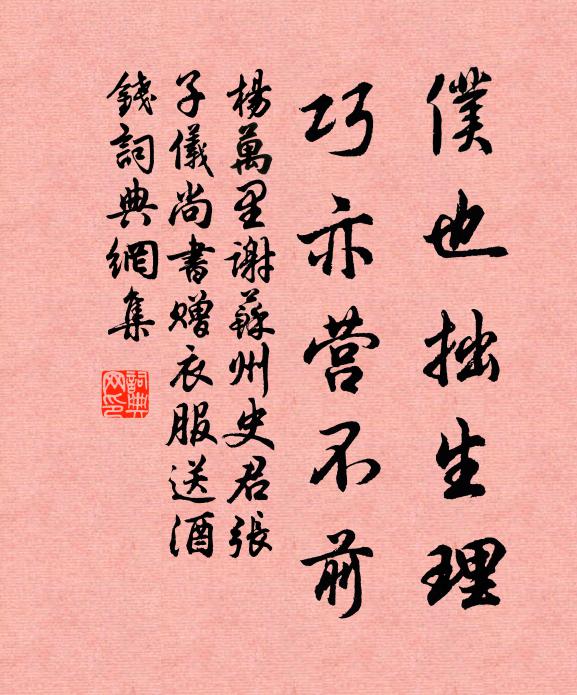 僕也拙生理
巧亦营不前
楊萬里謝蘇州史君張
子儀尚書贈衣服送酒
錢詞典網集
詞典
网印